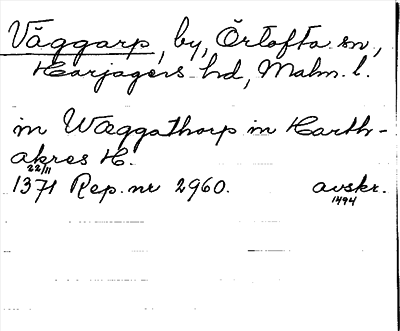 Väggarp, by, Örtofta sn,
Harjagers hd, Malm. l.
in Wæggathorp in Harth-
akres H.
22/11
1371 Rep. nr 2960. avskr.
1494